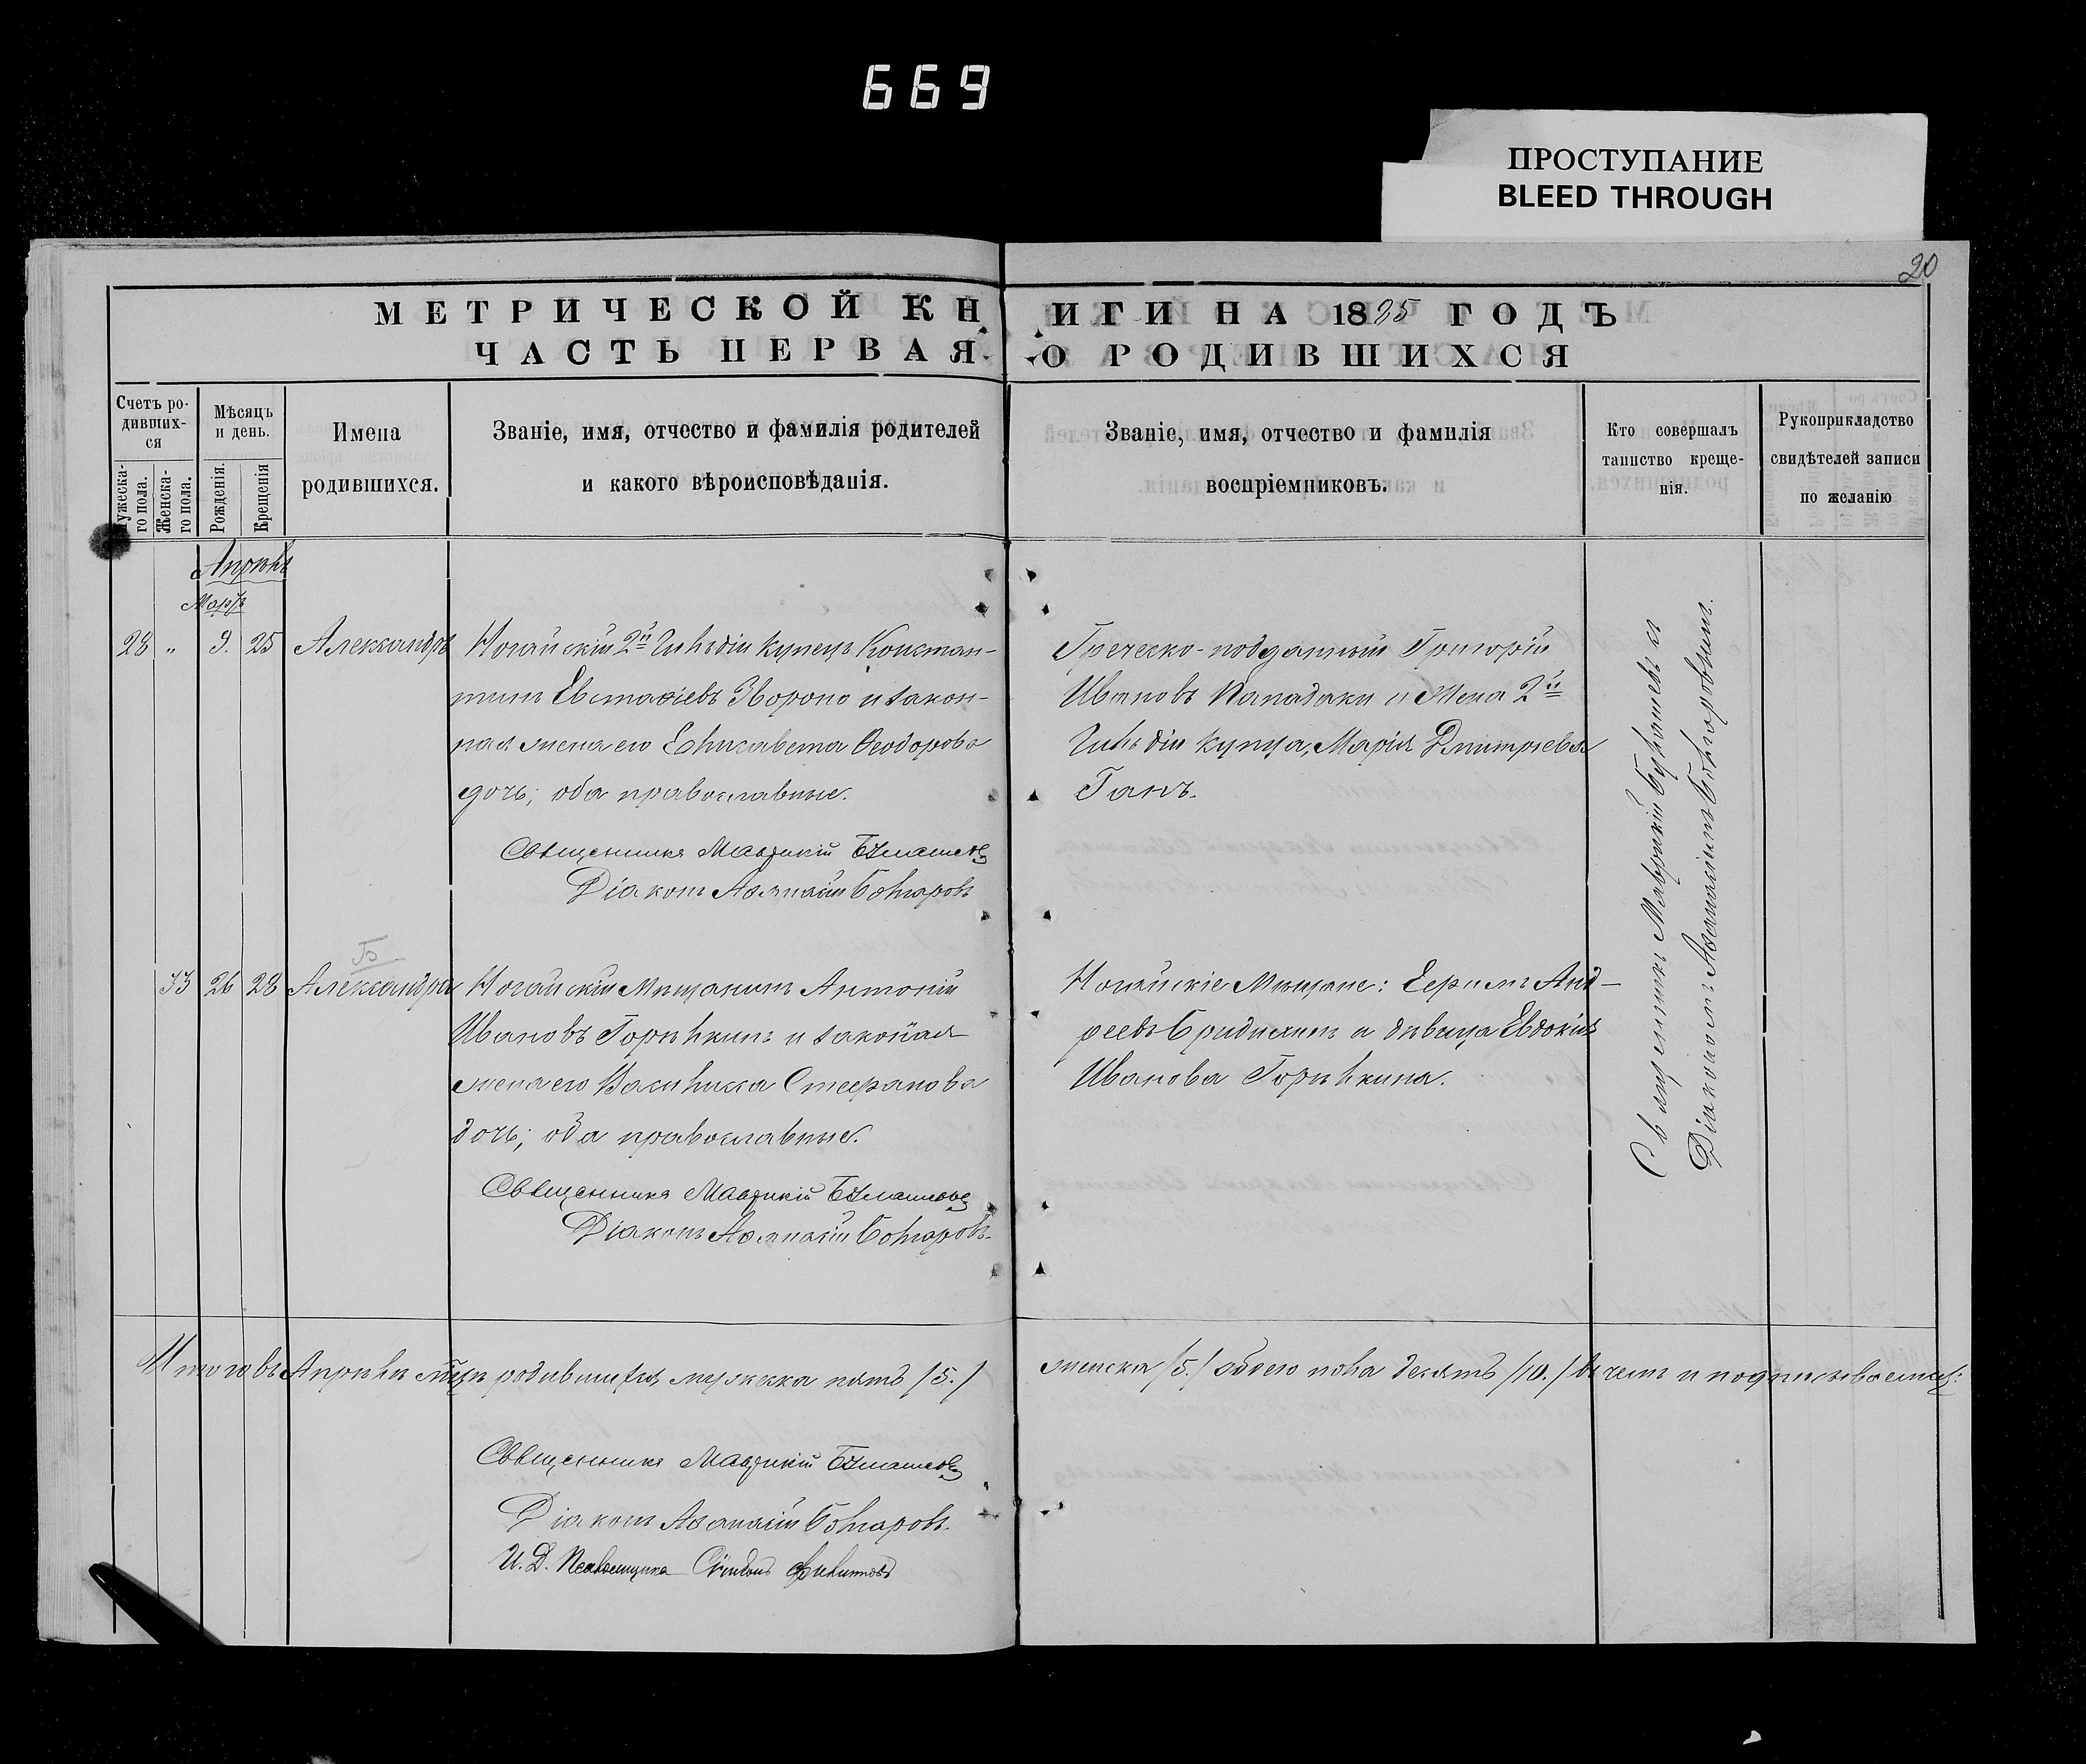 669
ПРОСТУПАНИЕ
BLEED THROUGH
20
МЕТРИЧЕСКОЙ КНИГИ НА 1895 ГОДЪ
ЧАСТЬ ПЕРВАЯ О РОДИВШИХСЯ
Счетъ ро-
дивших-
ся
Мужеска-
го пола.
Женска-
го пола.
Мѣсяцъ
и день.
Рожденія.
Крещенія
Имена
родившихся.
Званіе, имя, отчество и фамилія родителей
и какого вѣроисповѣданія.
Званіе, имя, отчество и фамилія
воспріемниковъ.
Кто совершалъ
таинство креще-
нія.
Рукоприкладство
свидѣтелей записи
по желанію
Апрѣль
Мартъ
28 " 9. 25 Александръ
Ногайскій 2й Гильдіи купецъ Констан-
тинъ Евстафіевъ Звороно и закон-
ная жена его Елисавета Ѳеодорова
дочь; оба православные.
Священникъ Маврикій
Діаконъ Аѳанасій Болгаровъ
Греческо-подданный Григорій
Ивановъ Пападаки и Жена 2й
Гильдіи купца, Марія Дмитріева
Ганъ.
Священникъ Маврикій
Діакономъ Аѳанасіемъ Болгаровымъ.
Б
33 26 28 Александра
Ногайскій Мѣщанинъ Антоній
Ивановъ Горѣлкинъ и законая
жена его Василисса Стефанова
дочь; оба православные.
Священникъ Маврикій
Діаконъ Аѳанасій Болгаровъ.
Ногайскіе Мѣщане: Ефримъ Анд-
реевъ и дѣвица Евдокія
Иванова Горѣлкина.
Итого въ Апрѣлѣ мцѣ родившихся, мужеска пять /5./ женска /5./ обоего пола десять /10./ въ чемъ и подписываемся:
Священникъ Маврикій
Діаконъ Аѳанасій Болгаровъ.
И. Д. Псаломщика